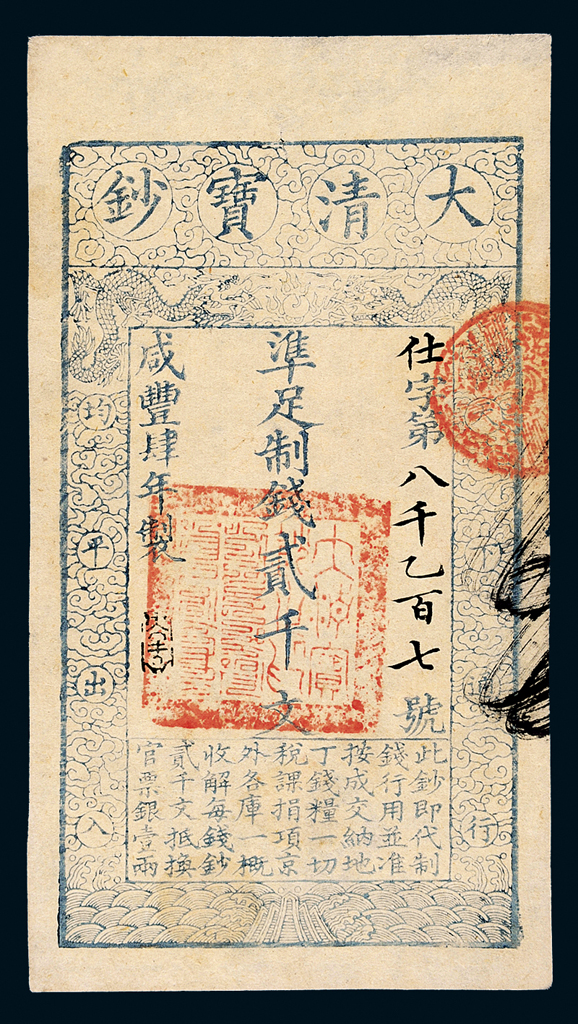 大清寶鈔
行
仕字第八千乙百七號
準足制錢貳千文
咸豐肆年製
均平出入
此鈔即代制
錢行用並准
按成交納地
丁錢糧一切
稅課捐項京
外各庫一概
收解每錢鈔
貳千文抵換
官票銀壹兩